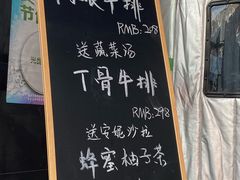 节
牛排
RMB:258
送蔬菜汤
T骨牛排
RMB:298
送安妮沙拉
蜂蜜柚子茶